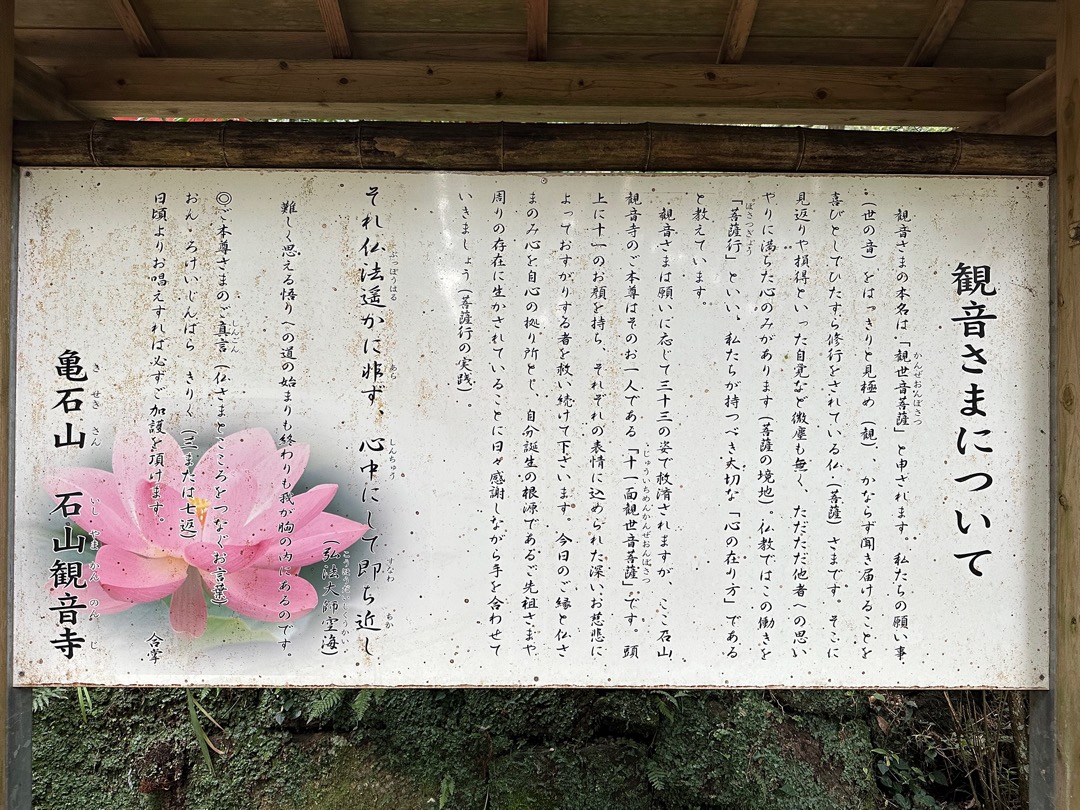 観音さまについて
観音さまの本名は、「観世音菩薩」と申されます。私たちの願い事
（世の音）をはっきりと見極め（観）、かならず聞き届けることを
喜びとしてひたすら修行をされている仏（菩薩）さまです。そこに
見返りや損得といった自覚など微塵も無く、ただただ他者への思い
やりに満ちた心のみがあります（菩薩の境地）。仏教ではこの働きを
「菩薩行」といい、私たちが持つべき大切な「心の在り方」である
と教えています。
観音さまは願いに応じて三十三の姿で救済されますが、ここ石山
観音寺のご本尊はそのお一人である「十一面観世音菩薩」です。頭
上に十一のお顔を持ち、それぞれの表情に込められた深いお慈悲に
よっておすがりする者を救い続けて下さいます。今日のご縁と仏さ
まのみ心を自心の拠り所とし、自分誕生の根源であるご先祖さまや
周りの存在に生かされていることに日々感謝しながら手を合わせて
いきましょう（菩薩行の実践）
それ仏法遥かに非ず、心中にして即ち近し
（弘法大師空海）
難しく思える悟りへの道の始まりも終わりも我が胸の内にあるのです。
◎ご本尊さまのご真言（仏さまとこころをつなぐお言葉）
おん・ろけいじんばら　きりく（三または七返）
日頃よりお唱えすれば必ずご加護を頂けます。
合掌
亀石山　石山観音寺